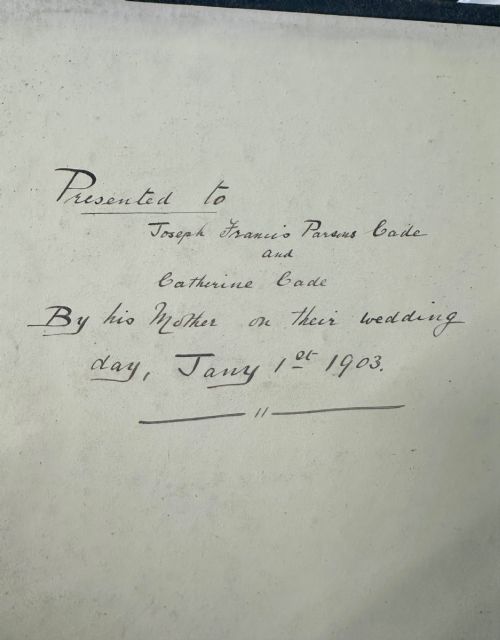 Presented to
Joseph Francis Parsons Cade
and
Catherine Cade
By his Mother on their wedding
day, Jany 1st 1903.